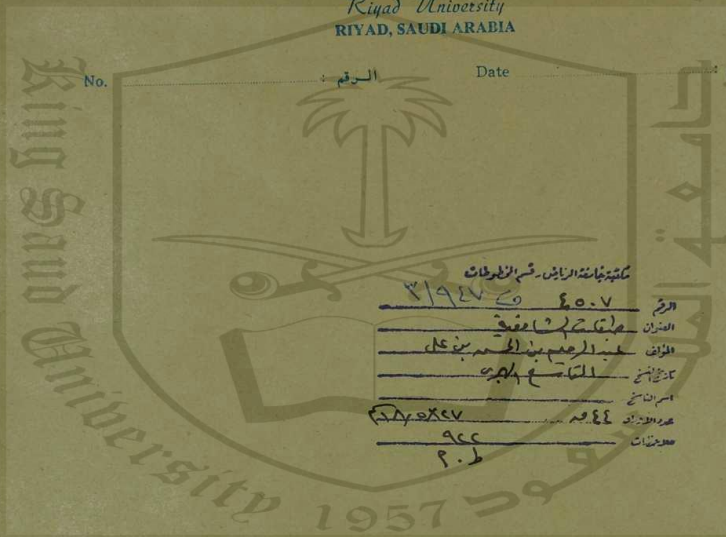 Riyad University
RIYAD, SAUDI ARABIA
No. الرقم : Date
King Saud University
جامعة الملك سعود
1957
مكتبة جامعة الرياض - قسم المخطوطات
الرقم ٤٥٠٧ ف ٣/٩٤٧
العنوان طبقات الشافعية
المؤلف عبد الرحيم بن الحسن بن علي
تاريخ النسخ التاسع الهجري
اسم الناسخ
عدد الأوراق ٤٤
ملاحظات ٩٢٢
ط . م